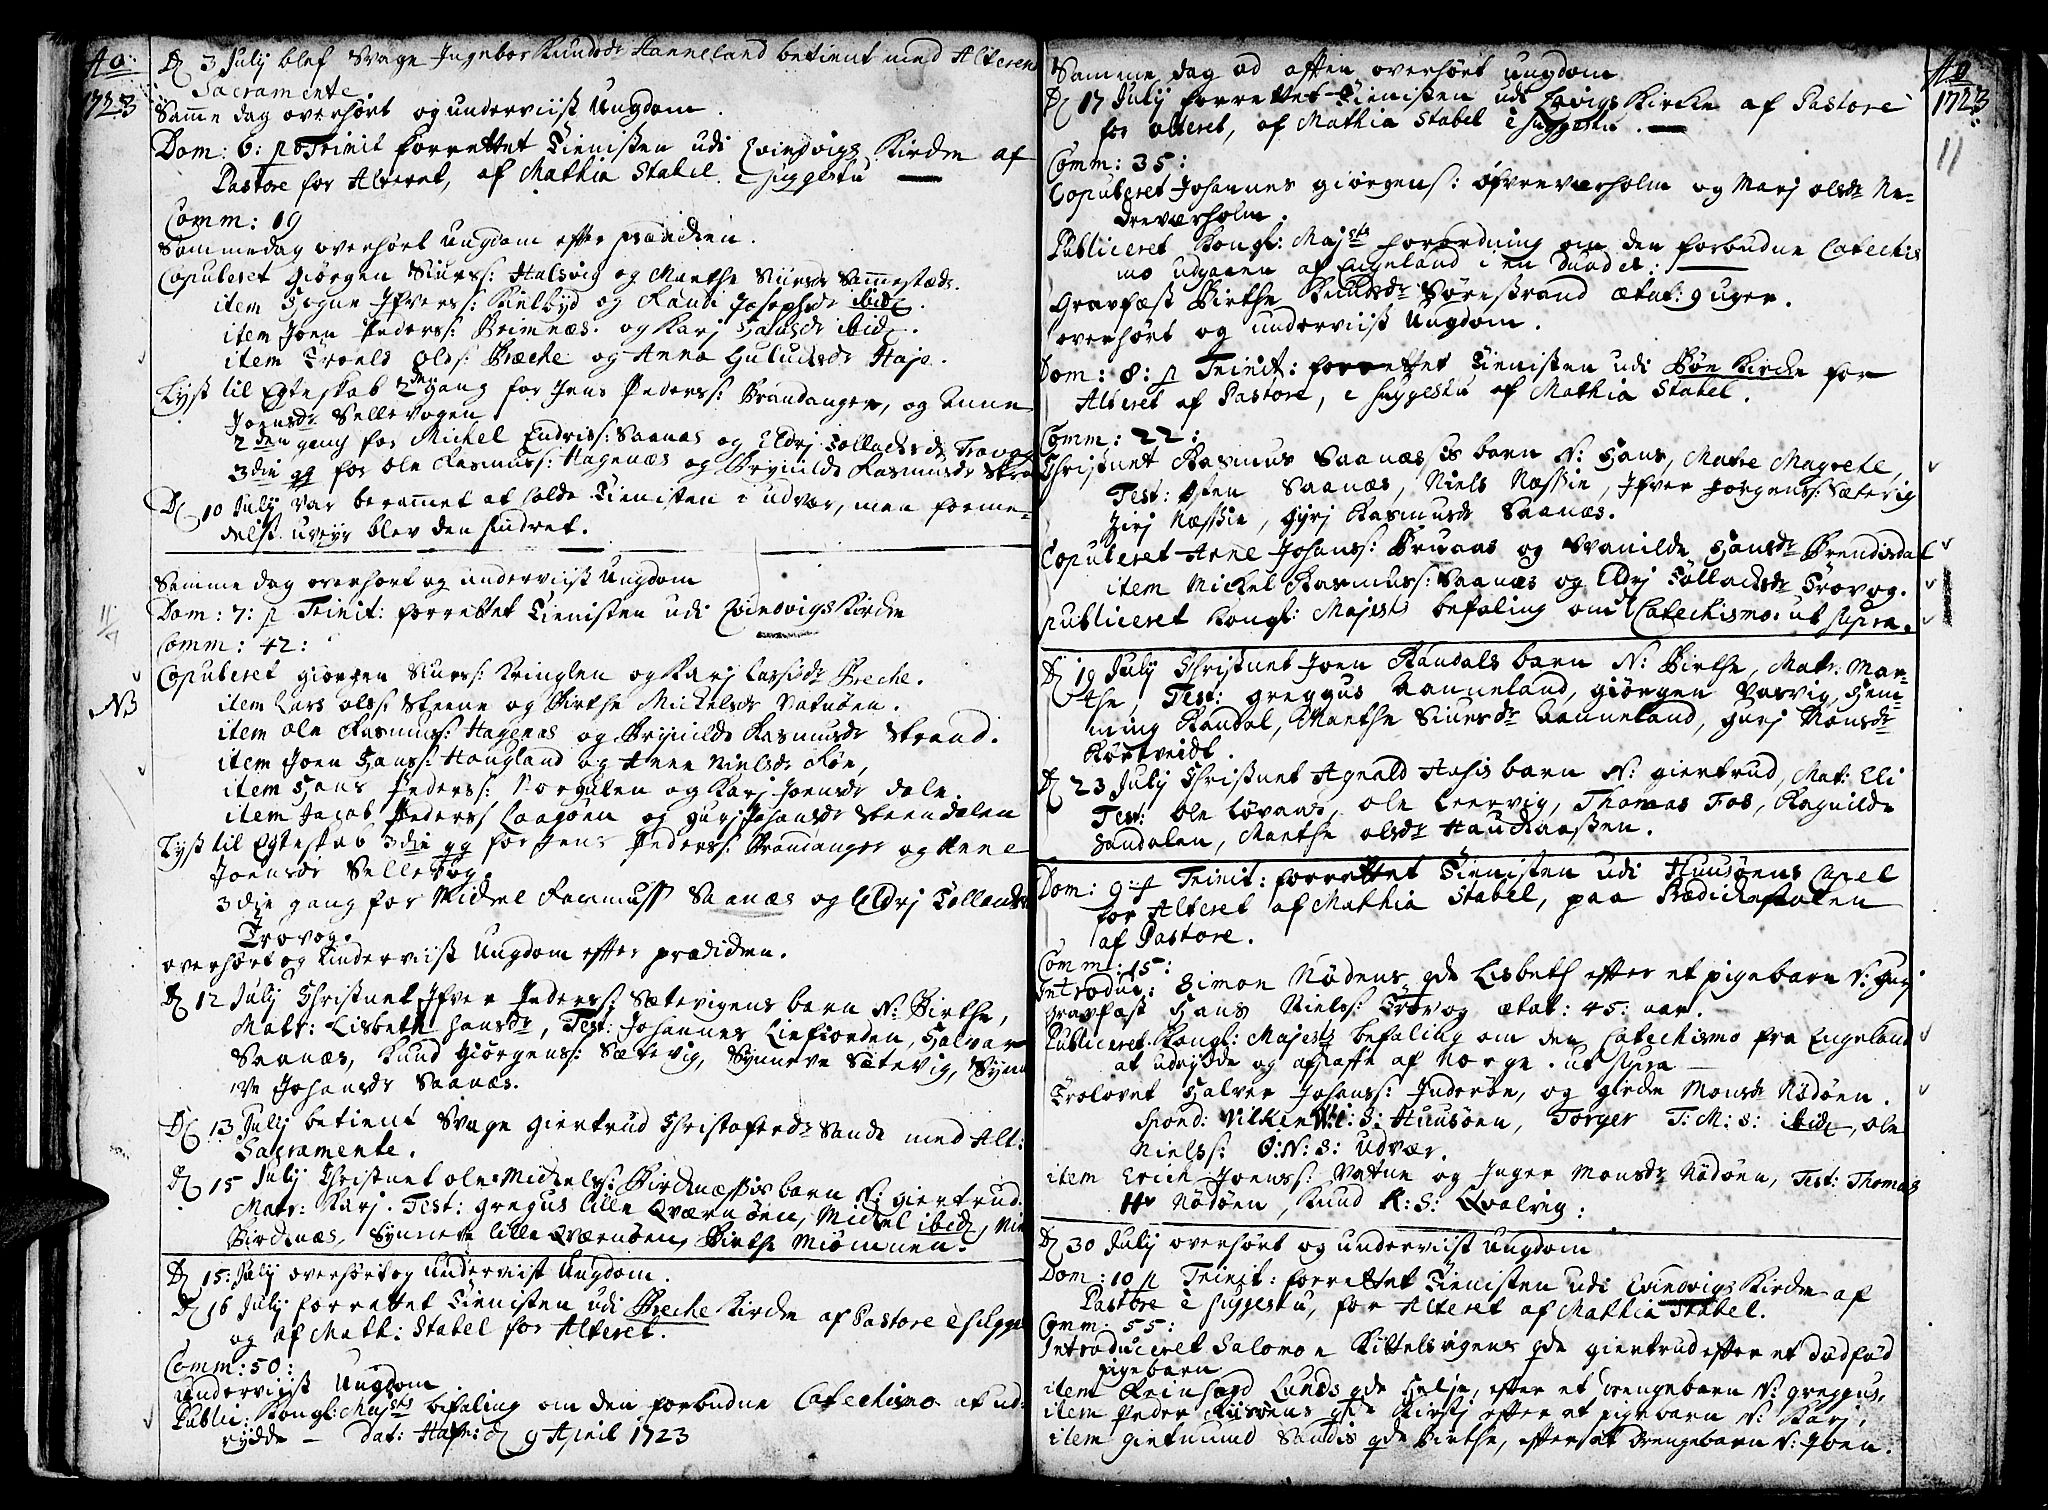 Ao:
1723
D 3 July blef Svage Ingebor Knudsdr Hanneland betient med Alterens
Sacramente
Samme dag overhørt og underviist Ungdom.
Dom: 6: p Trinit forrettet Tienisten udi Evindvigs Kirche af
Pastore for Alteret, af Mathia Stabel e suggestu
Comm: 19
Sammedag overhørt Ungdom efter prædichen.
Copuleret Giørgen Siurss: Halsvig og Marthe Siursdr Sammestæds.
item Hogne Ifverss: Kielbyd og Randi Josephsdr ibid.
item Joen Pederss: Brimnæs og Karj Hansdr ibid.
item Troels Olss: Breche og Anna Guludsdr Haje.
Lyst til Egteskab 2den gang for Jens Pederss: Brandanger, og Anne
Joensdr Sellevogen
2den gang for Michel Endriss: Saanæs og Eldrj Tollachsdr Trovog
3die gg for Ole Rasmuss: Hagenæs og Brynilde Rasmusdr Stra
D 10 July var berammet at holde Tienisten i Udvær, men forme-
delst uveyr blev den hindret.
Samme dag overhørt og underviist Ungdom
Dom: 7: p Trinit: forrettet Tienisten udi Evindvigs Kirche
Comm: 42:
Copuleret Giørgen Siurss: Kringlen og Karj Larsdr Breche.
NB
item Lars Olss: Steene og Birthe Michelsdr Vatnøen.
item Ole Rasmuss: Hagenæs og Brynilde Rasmusdr Strand.
item Joen Hanss: Hougland og Anne Nielsdr Røn,
item Hans Pederss: Norgulen og Karj Joensdr Dale.
item Jacob Pederss Laagøen og Gurj Johansdr Steendalen
Lyst til Egteskab 3die gg for Jens Pederss: Brandanger og Anne
Joensdr Sellevog.
3die gang for Michel Rasmuss Saanæs og Eldrj Tollachsdr
Trovog.
overhørt og underviist Ungdom efter prædichen.
D 12 July Christnet Ifver Pederss: Sætevigens barn N: Birthe,
Matr: Lisbeth Hansdr, Test: Johannes Liefiorden, Halvor
Saanæs, Knud Giørgenss: Sætevig, Synneve Sætevig, Synn
ve Johansdr Saanæs.
D 13 July betient Svage Giertrud Christofersdr Sande med Alt:
Sacramente.
D 15 July Christnet Ole Michelss: Birchnæssis barn N: Giertrud.
Matr: Karj. Test: Gregus lille Qværnøen, Michel ibid, Nie
Birchnæs, Synneve lille Qværnøen, Birthe Miømnen.
D 15: July overhørt og underviist Ungdom.
D 16 July forrettet Tienisten udi Breche Kirche af Pastore e sugge
og af Math: Stabel for Alteret.
Comm: 50:
underviist Ungdom
Public: Kongl: Majsts befaling om den forbudne Catechismo at ud-
rydde - Dat: Hafn: d 9 April 1723
Ao
1723
11
Samme dag ad aften overhørt ungdom
D 17 July forrettet Tienisten udi Evigs Kirche af Pastore
for alteret, af Mathia Stabel e suggestu.
Comm: 35:
Copuleret Johannes Giørgenss: Øfreværholm og Marj Olsdr Ne-
dreværholm.
Publiceret Kongl: Majsts forordning om den forbudne Catechis
mo udgaaen af Engeland i en
Gravfæst Birthe Knudsdr Sørestrand ætat: 9 uger.
overhørt og underviist Ungdom.
Dom: 8: p Trinit: forrettet Tienisten udi Bøe Kirche for
Alteret af Pastore, e suggestu af Mathia Stabel.
Comm: 22:
Christnet Rasmus Saanæsis barn N: Hans, Matre Magrete,
Test: Sten Saanæs, Niels Næssie, Ifver Jorgenss: Sætevig
Zirj Næssie, Gyrj Rasmusdr Saanæs.
Copuleret Arne Johanss: Bruaas og Svanilde Hansdr Brendisdal
item Michel Rasmuss: Saanæs og Eldrj Tollachsdr Trovog.
publiceret Kongl: Majests befaling om Catechismo. ut supra.
D 19 July Christnet Joen Randals barn N: Birthe, Matr: Mar-
the, Test: Greggus Hanneland, Giørgen Varvig, Hem-
ming Randal, Marthe Siursdr Hanneland, Gurj Monsdr
Kørtveidt.
D 23 July Christnet Agnald barn N: Giertrud, Mat: Eli
Test: Ole Løvaas, Ole Leervig, Thomas Fos, Ragnilde
Sandalen, Marthe Olsdr
Dom: 9: p Trinit: forrettet Tienisten udi Huusøens Capel
for Alteret af Mathia Stabel, paa Prædichestolen
af Pastore.
Comm: 15:
Introduc: Simon Nødens qde Lisbeth efter et pigebarn N: Gurj
Gravfæst Hans Nielss: Trovog ætat: 45: aar.
Publiceret Kongl: Majests befaling om den Catechismo fra Engeland
at udrydde og afskaffe af Norge. ut supra
Trolovet Halver Johanss: Inderøe, og Girde Monsdr Nødøen.
Spond: Vilken N: S: Huusøen, Torger T: M: S: ibid, Ole
Nielss: O: N: S: Udvær.
item Erich Joenss: Vatne og Inger Monsdr Nødøen, Test: Thomas
Nødøen, Knud K: S: Qvalvig:
D 30 July overhørt og underviist Ungdom
Dom: 10 p Trinit: forrettet Tienisten udi Evindvigs Kirche af
Pastore e suggestu, for Alteret af Mathia Stabel.
Comm: 55:
Introduceret Salomon Kittelsvigens qde Giertrud efter et dødfød
pigebarn
item Reinhard Lunds qde Helje, efter et drengebarn N: Greggus,
item Peder Risøens qde Kirstj efter et pigebarn N: Karj,
item Giermund Sandis qde Birthe, efter et drengebarn N: Joen.